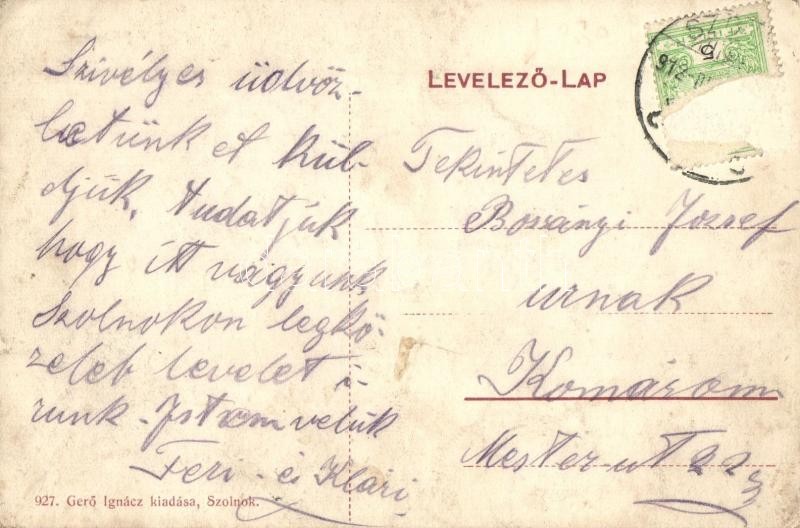 Szivélyes üdvöz-
letünket kül-
djük, tudatjuk
hogy itt vagyunk
Szolnokon legkö-
zeleb levelet i-
runk. Istom velük
Feri és Klári
927. Gerő Ignácz kiadása, Szolnok.
LEVELEZŐ-LAP
Tekintetes
Bossányi Jozsef
urnak
Komárom
Mester ut 22
912